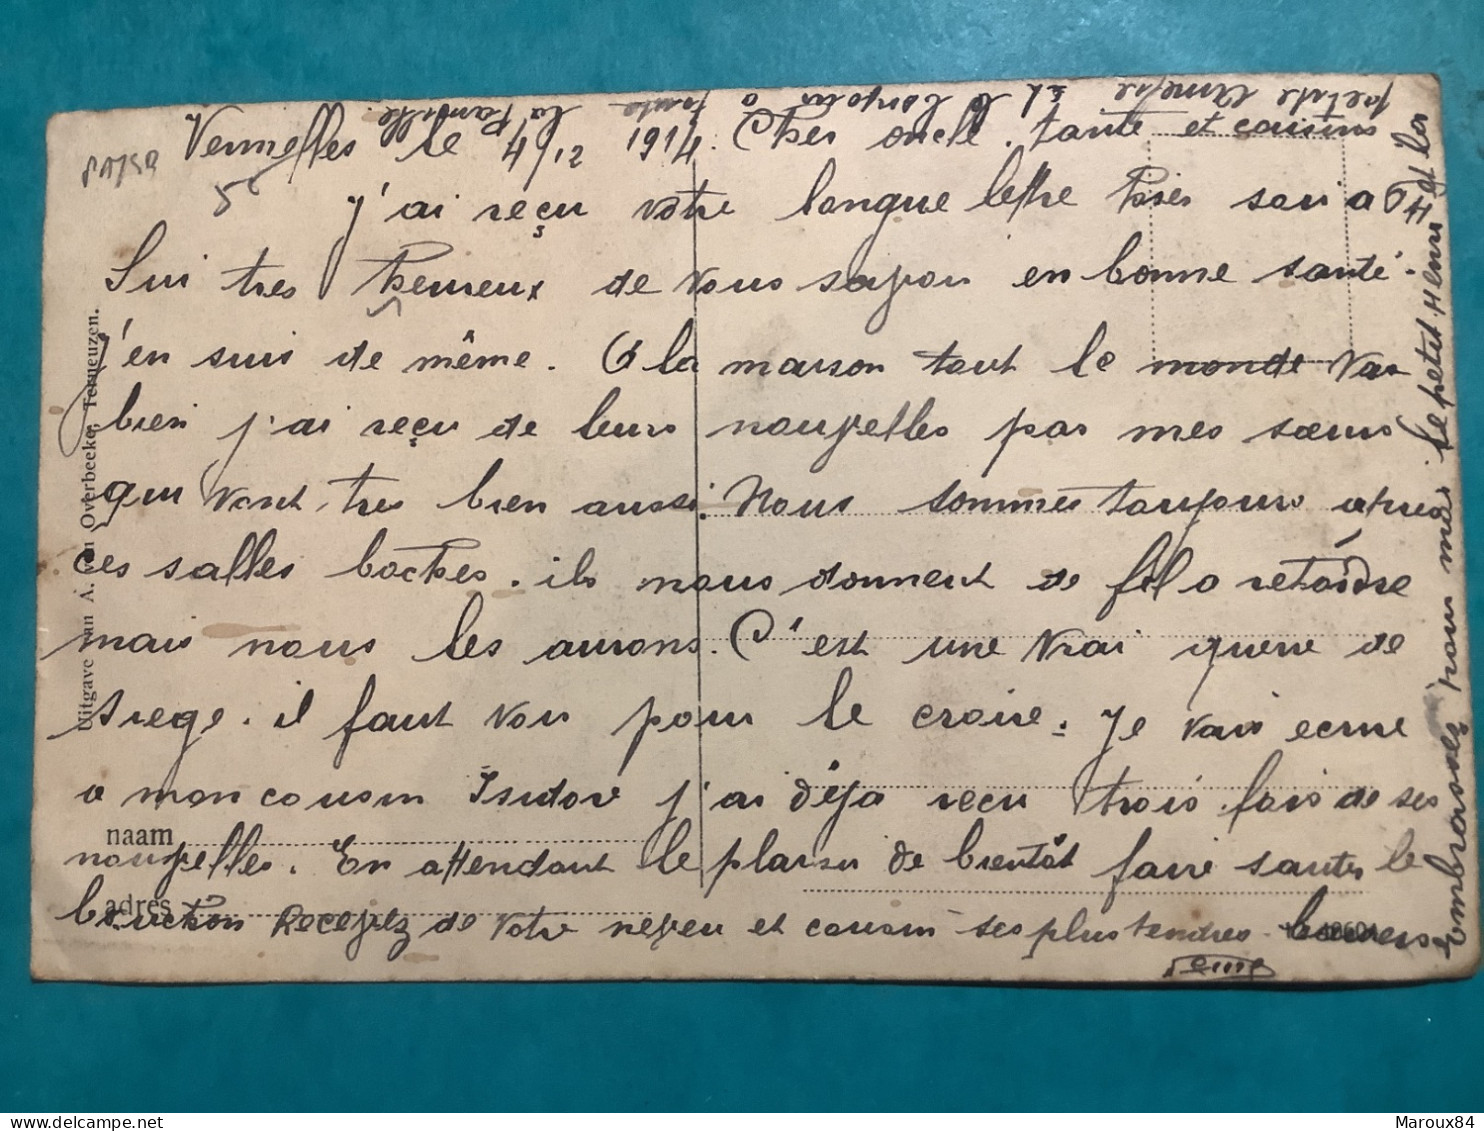 Vermelles le 4/12 1914. Cher oncle. tante et cousins
j'ai reçu votre longue lettre hier soir a 7 H
Sui tres heureux de vous savoir en bonne santé.
j'en suis de même. A la maison tout le monde va
bien j'ai reçu de leurs nouvelles par mes sœurs
qui vont tres bien aussi. Nous sommes toujours apres
ces salles boches. ils nous donnent de fil a retordre
mais nous les aurons. C'est une vrai guerre de
siege. il faut voir pour le croire. Je vais ecrire
a mon cousin Isidore j'ai déja recu trois fois de ses
nouvelles. En attendant le plaisir de bientôt faire sauter le
bouchon Recevez de votre neveu et cousin ses plus tendres baisers
Embrassez pour moi le petit Henri et la
petite
Et le bonjour a toute la famille.
Uitgave van A. van Overbeeke, Terneuzen.
naam
adres
Maroux84